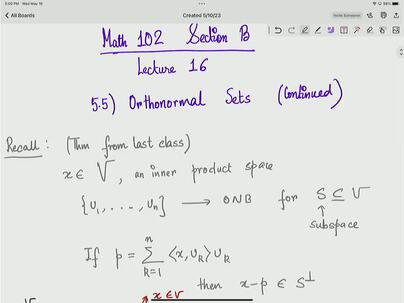 5:00 PM Wed May 10
98%
All Boards
Created 5/10/23
Invite Someone
Math 102 Section B
Lecture 16
5.5) Orthonormal Sets (Continued)
Recall: (Thm from last class)
x ∈ V, an inner product space
{u₁, ..., uₙ} → ONB for S ⊆ V
subspace
If p = Σ ⟨x, u_k⟩ u_k
n
k=1
then x-p ∈ S^⊥
x ∈ V